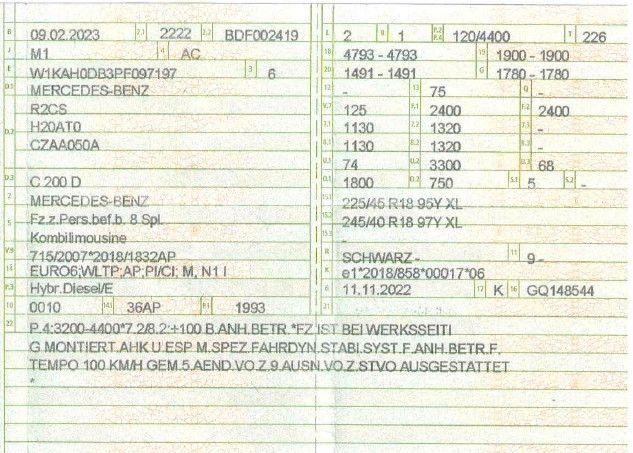 B 09.02.2023 2.1 2222 2.2 BDF002419
J M1 4 AC
E W1KAH0DB3PF097197 3 6
D.1 MERCEDES-BENZ
R2CS
D.2 H20AT0
CZAA050A
D.3 C 200 D
2 MERCEDES-BENZ
5 Fz.z.Pers.bef.b. 8 Spl.
Kombilimousine
V.9 715/2007*2018/1832AP
14 EURO6;WLTP;AP;PI/CI; M, N1 I
P.3 Hybr.Diesel/E
10 0010 14.1 36AP P.1 1993
L 2 9 1 P.2 P.4 120/4400 T 226
18 4793 - 4793 19 1900 - 1900
20 1491 - 1491 G 1780 - 1780
12 - 13 75 Q -
V.7 125 F.1 2400 F.2 2400
7.1 1130 7.2 1320 7.3 -
8.1 1130 8.2 1320 8.3 -
U.1 74 U.2 3300 U.3 68
O.1 1800 O.2 750 S.1 5 S.2 -
15.1 225/45 R18 95Y XL
15.2 245/40 R18 97Y XL
15.3 -
R SCHWARZ - 11 9 -
K e1*2018/858*00017*06
6 11.11.2022 17 K 16 GQ148544
22 P.4:3200-4400*7.2/8.2:+100 B.ANH.BETR.*FZ IST BEI WERKSSEITI
G.MONTIERT.AHK U.ESP M.SPEZ.FAHRDYN.STABI.SYST.F.ANH.BETR.F.
TEMPO 100 KM/H GEM.5.AEND.VO.Z.9.AUSN.VO.Z.STVO AUSGESTATTET
*